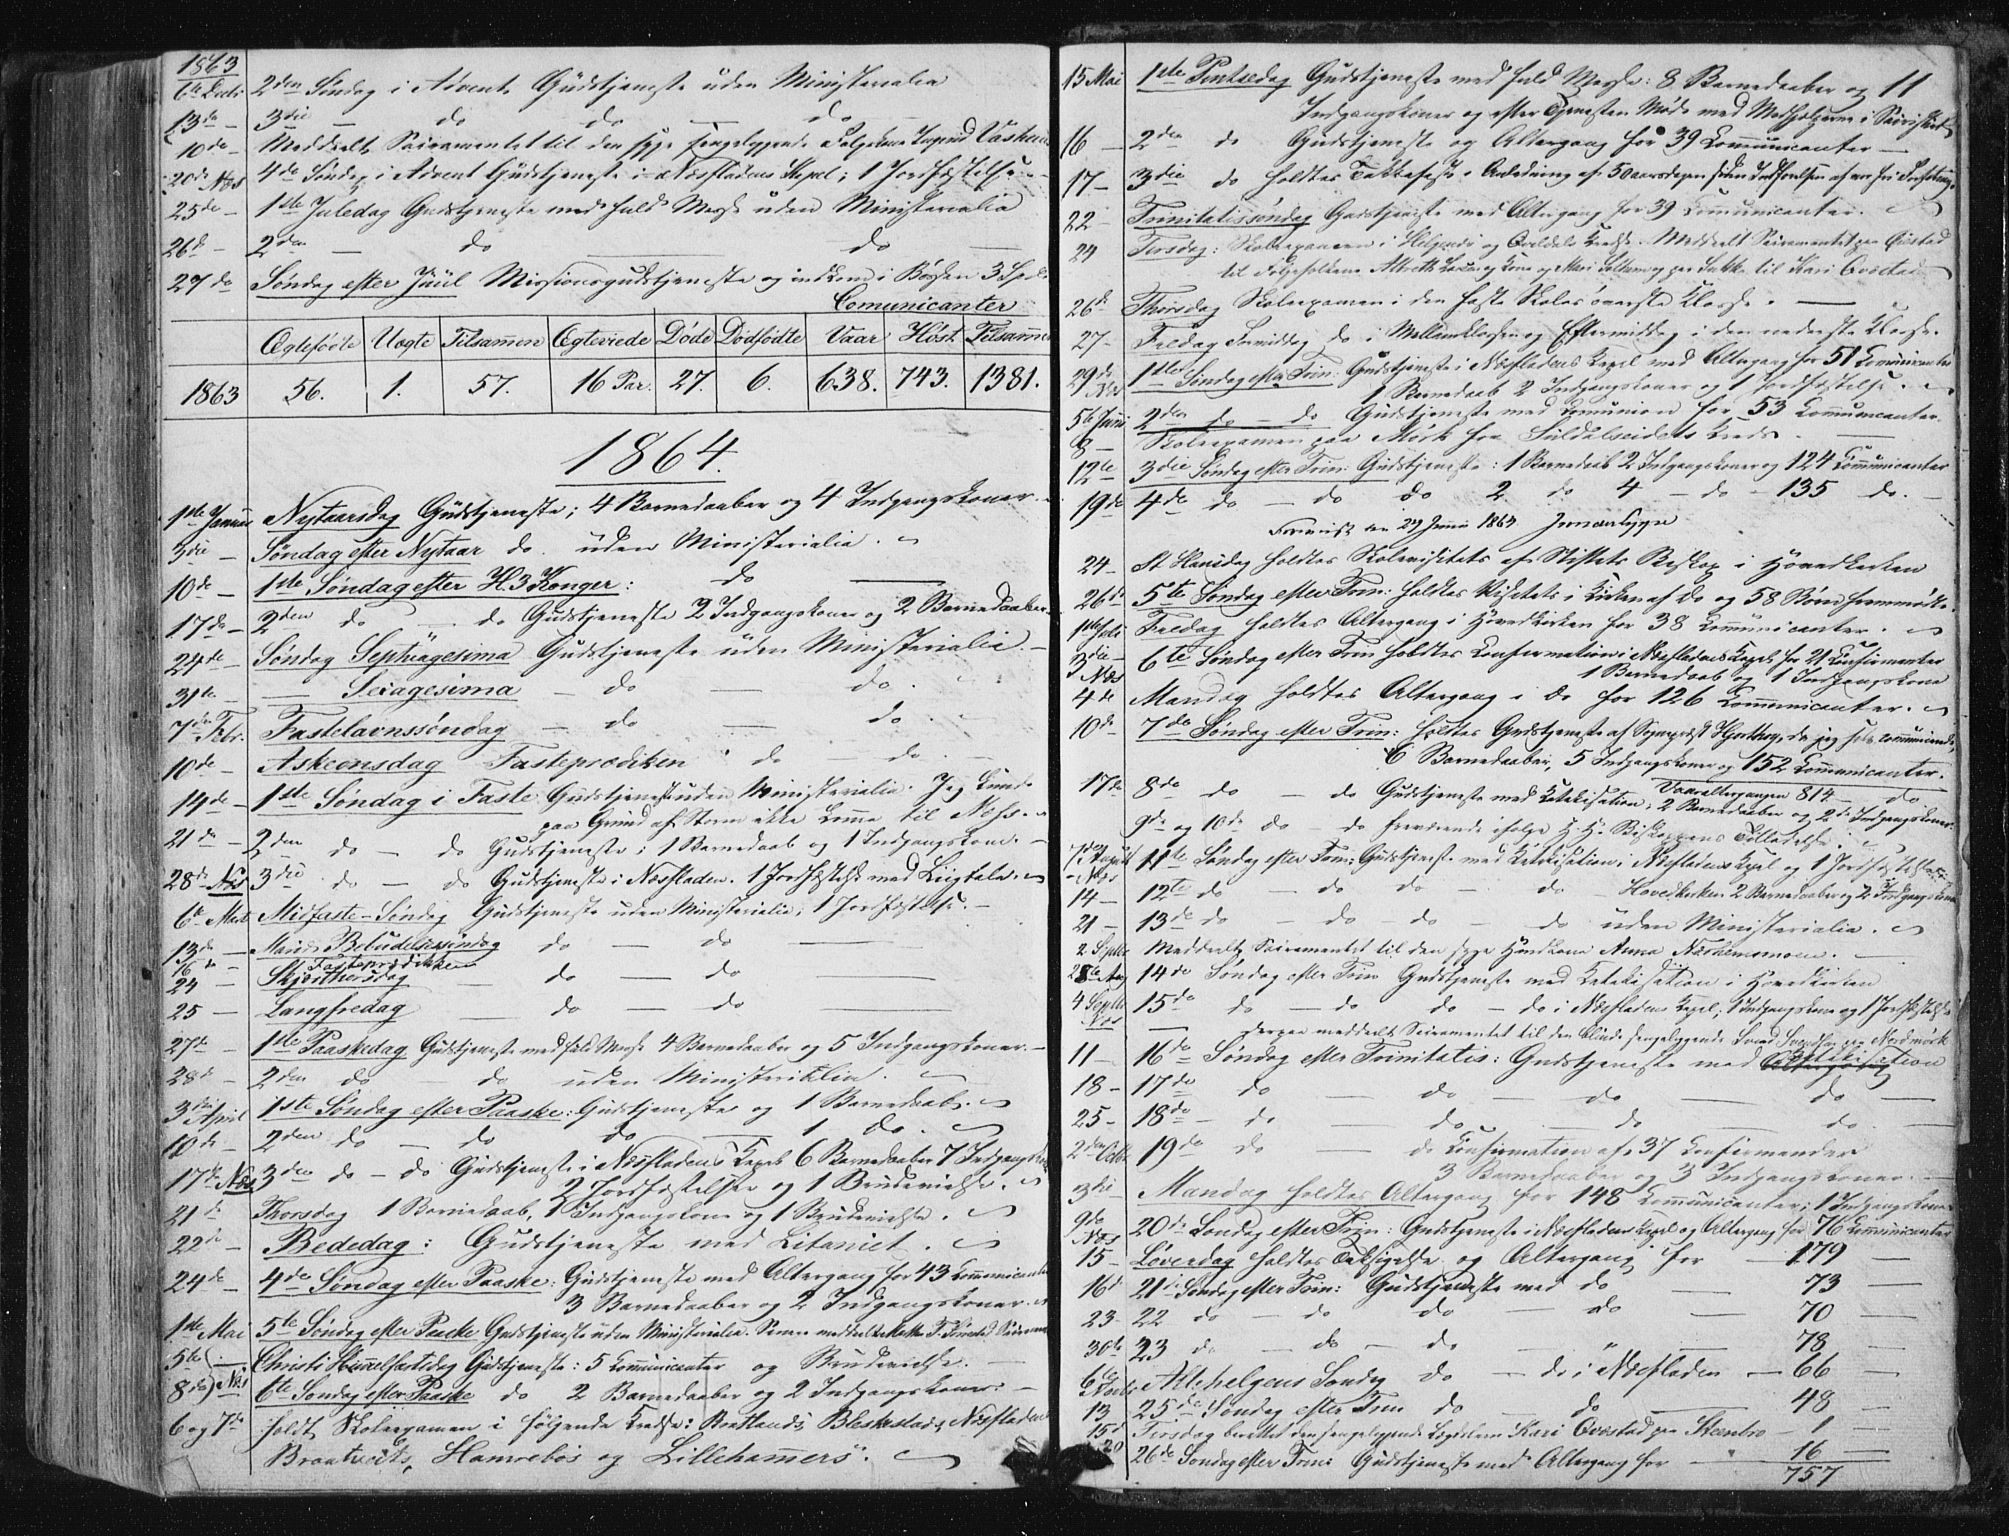 1863
6te Decbr 2den Søndag i Advent Gudstjeneste uden Ministerialia
13de — 3die — do — do — do
10de — Meddeelt Sacramentet til den syge sengeliggende
20de Næs 4de Søndag i Advent Gudstjeneste i Næsfladens Kapel; 1 Jordfæstelse
25de — 1ste Juledag Gudstjeneste med fuld Messe uden Ministerialia
26de — 2den — do — do
27de Søndag efter Juul Missionsgudstjeneste og indkom i Bøssen 3 Spd
Comunicanter
Ægtefødte Uægte Tilsamen Ægteviede Døde Dødfødte Vaar Høst Tilsamen
1863 56. 1. 57. 16 Par. 27. 6. 638. 743. 1381.
1864.
1ste Januar Nytaarsdag Gudstjeneste; 4 Barnedaaber og 4 Indgangskoner.
3die — Søndag efter Nytaar do. uden Ministerialia.
10de — 1ste Søndag efter H. 3 Konger: do
17de — 2den do — do Gudstjeneste 2 Indgangskoner og 2 Barnedaaber
24de — Søndag Septuagesima Gudstjeneste uden Ministerialia.
31te — Sexagesima — do — do.
7de Febr. Fastelavnssøndag — do — do.
10de — Askeonsdag Fasteprædiken do do
14de — 1ste Søndag i Faste Gudstjeneste uden Ministerialia. Jeg kunde
paa Grund af Storm ikke komme til Næss.
21de — 2den do — do Gudstjeneste; 1 Barnedaab og 1 Indgangskone.
28de Næs 3die do — do Gudstjeneste i Næsfladen. 1 Jordfæstelse med Liigtale.
6te Mats Midfaste-Søndag Gudstjeneste uden Ministerialia, 1 Jordfæstelse.
13de — Mariæ Bebudelsessøndag do — do
16de — Fasteprædikken
24 — Skjærthorsdag — do — do
25 — Langfredag — do — do
27de — 1ste Paaskedag Gudstjeneste med fuld Messe 4 Barnedaaber og 5 Indgangskoner.
28de — 2den do do uden Ministerialia.
3die April 1ste Søndag efter Paaske: Gudstjeneste og 1 Barnedaab.
10de — 2den do — do do — 1 do.
17de Næs 3den do — do Gudstjeneste i Næsfladens Kapel 6 Barnedaaber 7 Indgangskoner
2 Jordfæstelser og 1 Brudevielse.
21de Thorsdag 1 Barnedaab, 1 Indgangskone og 1 Brudevielse.
22de — Bededag: Gudstjeneste med Litaniet.
24de — 4de Søndag efter Paaske: Gudstjeneste med Altergang for 43 Communicanter
3 Barnedaaber og 2 Indgangskoner.
1ste Mai 5te Søndag efter Paaske Gudstjeneste uden Ministerialia.
5te — Christi Himmelfartsdag Gudstjeneste: 5 Communicanter og Brudevielse.
8de Næs 6te Søndag efter Paaske do 2 Barnedaaber og 2 Indgangskoner.
6 og 7de holdt Skoleexamen i følgende Kredse: Bratlands, Bleskestads, Næsfladens
Braatveits, Hamrebøs og Lillehamers.
15 Mai 1ste Pintsedag Gudstjeneste med fuld Messe: 8 Barnedaaber og 11
Indgangskoner og efter Tjenesten Møde med Medhjelperne i Sacristiet
16 — 2den do Gudstjeneste og Altergang for 39 Communicanter
17 — 3die do holdtes Takkefest i Anledning af 50aarsdagen siden Indførelsen af vor fri Forfatning
22 — Trinitatissøndag Gudstjeneste med Altergang for 39 Communicanter.
24 Tirsdag: Skoleexamen i Helgenæs og Qvildals Kreds. Meddeelt Sacramentet paa
til
26de Thorsdag Skoleexamen i den faste Skoles øverste Klasse.
27 — Fredag Formiddag do i Mellemklassen og Eftermiddag i den nederste Klasse.
29de Næs 1ste Søndag efter Trin: Gudstjeneste i Næsfladens Kapel med Altergang for 51 Communicanter
1 Barnedaab 2 Indgangskoner og 1 Jordfæstelse.
5te Juni 2den do — do Gudstjeneste med Comunion for 53 Communicanter.
8 — Skoleexamen paa Mørk for Suldalseidets Kreds.
12te 3die Søndag efter Trin: Gudstjeneste: 1 Barnedaab 2 Indgangskoner og 124 Communicanter
19de 4de do — do do 2 do 4 — do — 135 do.
Forevist den 29 Juni 1864
24 — St Hansdag holdtes Skolevisitats af Stiftets Biskop i Hovedkirken
26de 5te Søndag efter Trin: holdtes Visitats i Kirken af do og 58 Børn fremmødte.
1ste Juli Fredag holdtes Altergang i Hovedkirken for 38 Communicanter.
3die Næs 6te Søndag efter Trin holdtes Confirmation i Næsfladens Kapel for 21 Confirmanter
1 Barnedaab og 1 Indgangskone
4de Mandag holdtes Altergang i do for 126 Communicanter.
10de 7de Søndag efter Trin: holdtes Gudstjeneste af Sognepræst Hjorthøy, da jeg selv communicerede,
6 Barnedaaber, 5 Indgangskoner og 152 Communicanter.
Vaaraltergangen 814
17de 8de do — do Gudstjeneste med Katekisation, 2 Barnedaaber og 2de Indgangskoner.
9de og 10de do — do fraværende ifølge H. Hr. Biskoppens Tilladelse.
7de August Næs 11te Søndag efter Trin: Gudstjeneste med Katekisation i Næsfladens Kapel og 1 Jordfæstelse
14 — 12te do — do do — do Hovedkirken 2 Barnedaaber og 2 Indgangskoner
21 — 13de do — do — do — do uden Ministerialia.
2 Septbr Meddeelte Sacramentet til den syge Huuskone Anna
28te Aug 14de Søndag efter Trin Gudstjeneste med Katekisation i Hovedkirken
4 Septbr Næs 15de do — do do — do i Næsfladens Kapel, 1 Indgangskone og 1 Jordfæstelse
derpaa meddeelt Sacramentet til den blinde sengeliggende Svend Svendsen paa Nordmork
11 — 16de Søndag efter Trinitatis: Gudstjeneste med Katekisation
18 — 17de do — do — do — do
25 — 18de do do — do — do
2den Octbr 19de do — do Confirmation af 37 Confirmander
3 Barnedaaber og 3 Indgangskoner.
3die Mandag holdtes Altergang for 148 Communicanter; 1 Indgangskone
9de Næs 20de Søndag efter Trin: Gudstjeneste i Næsfladens Kapel og Altergang for 76 Communicanter
15 — Løverdag holdtes Taksigelse og Altergang for — 179 —
16de 21de Søndag efter Trin: Gudstjeneste med do — 73 —
23 22 do — do do — do — 70 —
30te 23 do — do — do " — 78 —
6te Novbr Allehelgens Søndag do — do i Næsfladen — 66 —
13 25de Søndag efter Trin do do — 48 —
15de Tirsdag berettet den sengeliggende Kari Qvæstad paa Steenbro — 1 —
20 26de Søndag efter Trin: Gudstjeneste med Altergang for — 16
757